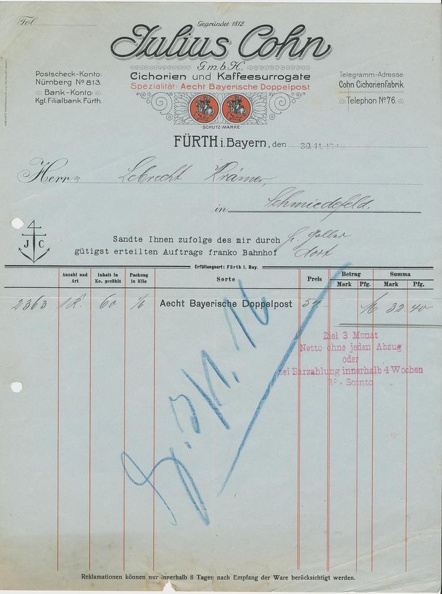 Fol.
Gegründet 1812
Julius Cohn
G.m.b.H.
Cichorien und Kaffeesurrogate
Spezialität: Aecht Bayerische Doppelpost
Postscheck-Konto:
Nürnberg Nº 813.
Bank-Konto:
Kgl. Filialbank Fürth.
Telegramm-Adresse
Cohn Cichorienfabrik.
Telephon Nº 76.
SCHUTZ-MARKE
FÜRTH i. Bayern, den 30.11.
Herrn Lebrecht Krämer,
in Schmiedefeld.
J C
Sandte Ihnen zufolge des mir durch
gütigst erteilten Auftrags franko Bahnhof dort
Erfüllungsort: Fürth i. Bay.
Anzahl und Art
Inhalt in Ko. gezählt
Packung in Kilo
Sorte
Preis
Betrag
Mark Pfg.
Summa
Mark Pfg.
2363 1 K. 60 Aecht Bayerische Doppelpost 54 M 32 40
Ziel 3 Monat
Netto ohne jeden Abzug
oder
bei Barzahlung innerhalb 4 Wochen
Sconto
Reklamationen können nur innerhalb 8 Tagen nach Empfang der Ware berücksichtigt werden.